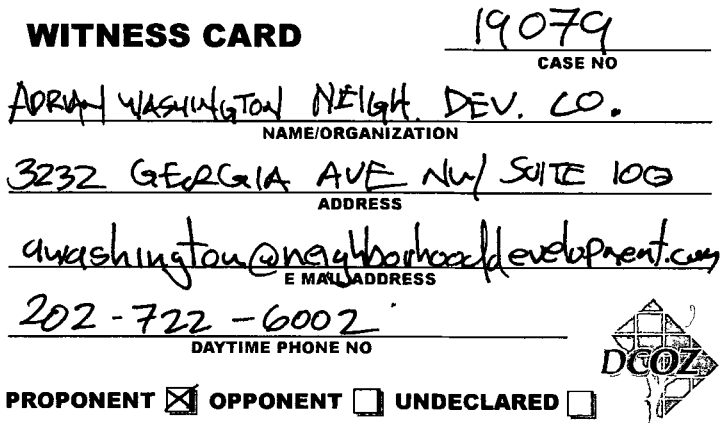 WITNESS CARD 19079
CASE NO
ADRIAN WASHINGTON NEIGH. DEV. CO.
NAME/ORGANIZATION
3232 GEORGIA AVE NW/ SUITE 100
ADDRESS
awashington@neighborhooddevelopment.com
E MAIL ADDRESS
202-722-6002
DAYTIME PHONE NO
DCOZ
PROPONENT ☒ OPPONENT ☐ UNDECLARED ☐